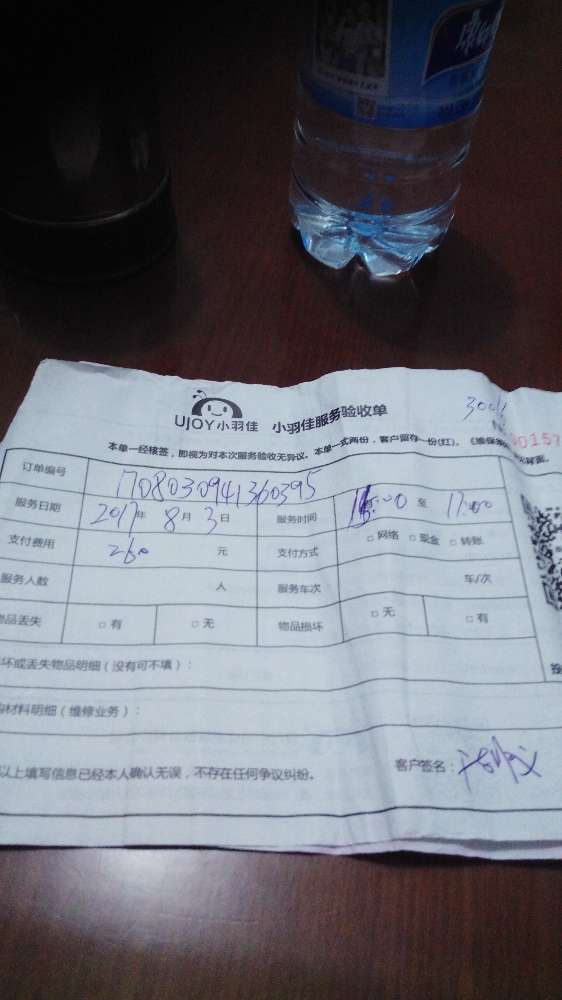 UJOY小羽佳 小羽佳服务验收单
本单一经核签，即视为对本次服务验收无异议。本单一式两份，客户留存一份(红)。
订单编号 1708030941360395
服务日期 2017年 8月 3日 服务时间 15:00 至 17:00
支付费用 260 元 支付方式 □ 网络 □ 现金 □ 转账
服务人数 人 服务车次 车/次
物品丢失 □ 有 □ 无 物品损坏 □ 无 □ 有
坏或丢失物品明细（没有可不填）：
材料明细（维修业务）：
以上填写信息已经本人确认无误，不存在任何争议纠纷。 客户签名：